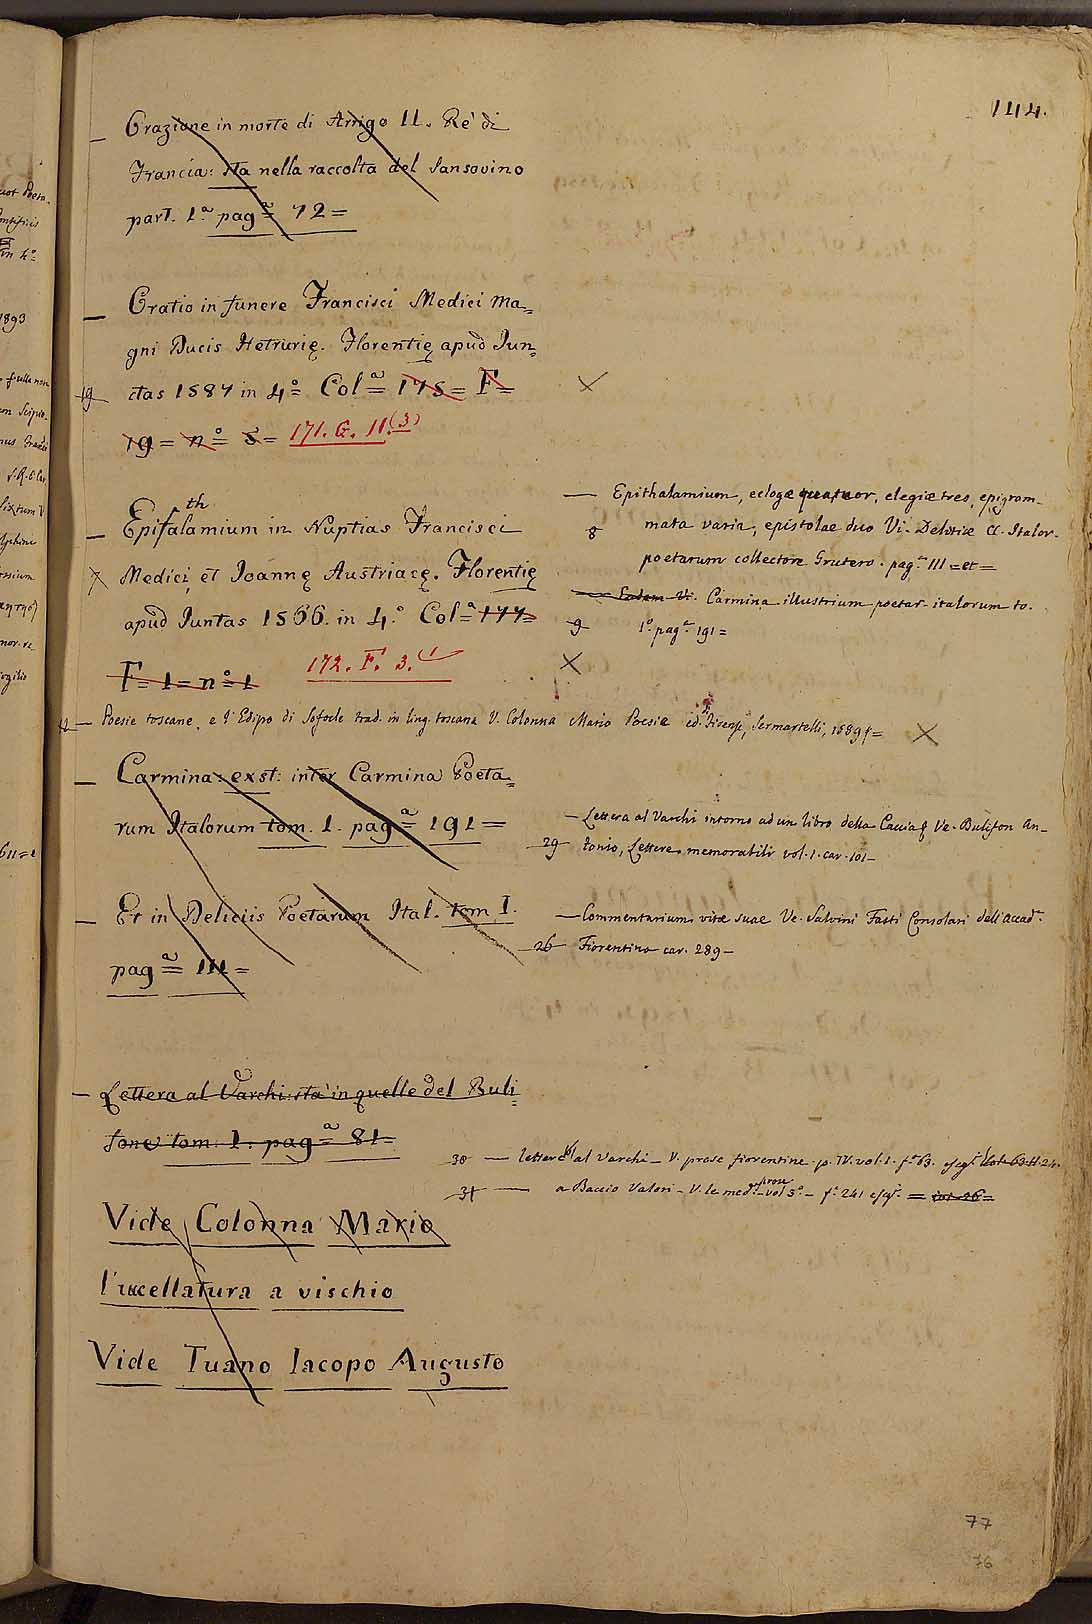 144.
— Orazione in morte di Arrigo II. Rè di
Francia: sta nella raccolta del Sansovino
part. 1.ª pag.ª 72 =
— Oratio in funere Francisci Medici Ma=
gni Ducis Hetrurię. Florentię apud Jun=
19 ctas 1587 in 4.º Col.ª 175 = F =
19 = n.º 5 = 171. G. 11.(3)
X
— Epifalamium in Nuptias Francisci
th
7 Medici, et Joannę Austriacę. Florentię
apud Juntas 1566. in 4.º Col.ª 177 =
F = 1 = n.º 1 172. F. 3. 1
— Epithalamium, eclogæ quatuor, elegiæ tres, epigram-
8 mata varia, epistolae duo Vi. Delitiæ CC. Italor.
poetarum collectore Grutero. pag.ª 111 = et =
Eadem Vi. Carmina illustrium poetar. italorum to.
9 1º. pag.ª 191 =
X
12 — Poesie toscane, e l'Edipo di Sofocle trad. in ling. toscana V. Colonna Mario Poesie ed. Firenze, Sermartelli, 1589 = X
— Carmina: exst: inter Carmina Poeta=
rum Italorum tom. 1. pag.ª 191 =
— Lettera al Varchi intorno ad un libro della Caccia Ve. Bulifon An-
29 tonio, Lettere memorabili vol. 1. car. 101 —
— Et in Deliciis Poetarum Ital. tom. I.
pag.ª 111 =
— Commentarium vitæ suae Ve. Salvini Fasti Consolari dell'accad.ª
26 Fiorentina car. 289 —
— Lettera al Varchi: sta in quelle del Buli=
fone tom. 1. pag.ª 81 =
30 — lettere al Varchi — V. prose fiorentine. p. IV. vol. 1. f.º 63. e seg.
31 — a Baccio Valori — V. le med.e prose vol 3º — f.º 241 e seg. =
Vide Colonna Mario
l'uccellatura a vischio
Vide Tuano Iacopo Augusto
77
76